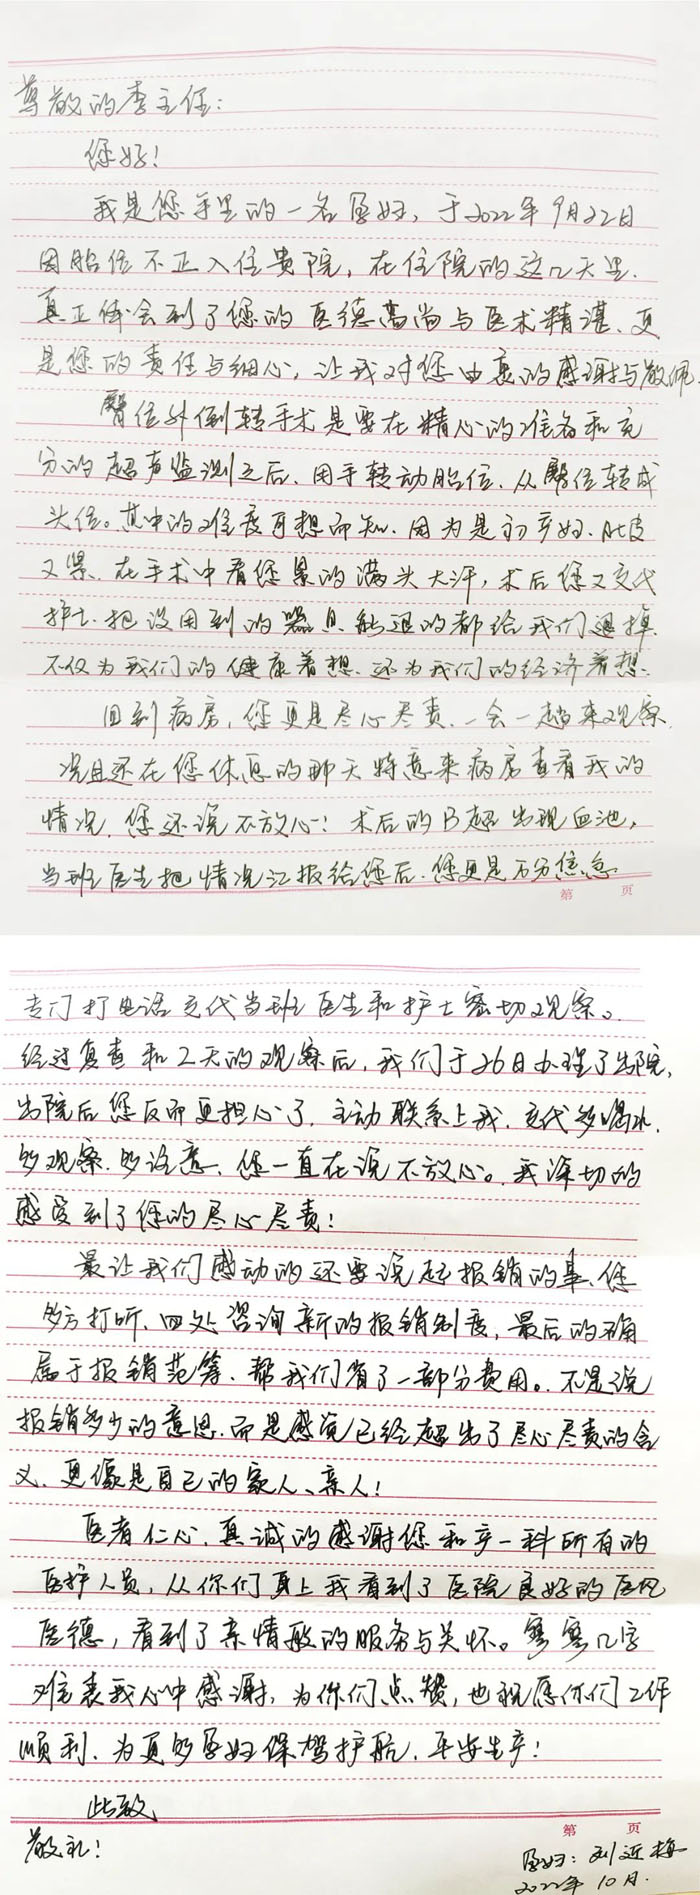 尊敬的李主任：
您好！
我是您手里的一名孕妇，于2022年9月22日
因胎位不正入住贵院，在住院的这几天里、
真正体会到了您的医德高尚与医术精湛、更
是您的责任与细心，让我对您由衷的感谢与敬佩.
臀位外倒转手术是要在精心的准备和充
分的超声监测之后、用手转动胎位、从臀位转成
头位。其中的难度可想而知、因为是初产妇、肚皮
又紧、在手术中看您累的满头大汗，术后您又交代
护士、把没用到的器具能退的都给我们退掉
不仅为我们的健康着想、还为我们的经济着想、
回到病房，您更是尽心尽责、一会一趟来观察、
况且还在您休息的那天特意来病房查看我的
情况，您还说不放心！术后的B超出现血池，
当班医生把情况汇报给您后、您更是万分焦急
第 页
专门打电话交代当班医生和护士密切观察。
经过复查和2天的观察后，我们于26日办理了出院，
出院后您反而更担心了，主动联系上我，交代多喝水、
多观察、多注意、您一直在说不放心。我深切的
感受到了您的尽心尽责！
最让我们感动的还要说起报销的事、您
多方打听、四处咨询新的报销制度，最后的确
属于报销范筹、帮我们省了一部分费用。不是说
报销多少的意思、而是感觉已经超出了尽心尽责的含
义、更像是自己的家人、亲人！
医者仁心、真诚的感谢您和产一科所有的
医护人员，从你们身上我看到了医院良好的医风
医德，看到了亲情般的服务与关怀。寥寥几字
难表我心中感谢，为你们点赞，也祝愿你们工作
顺利、为更多孕妇保驾护航、平安生产！
此致
第 页
敬礼！
孕妇：刘近梅
2022年10月.